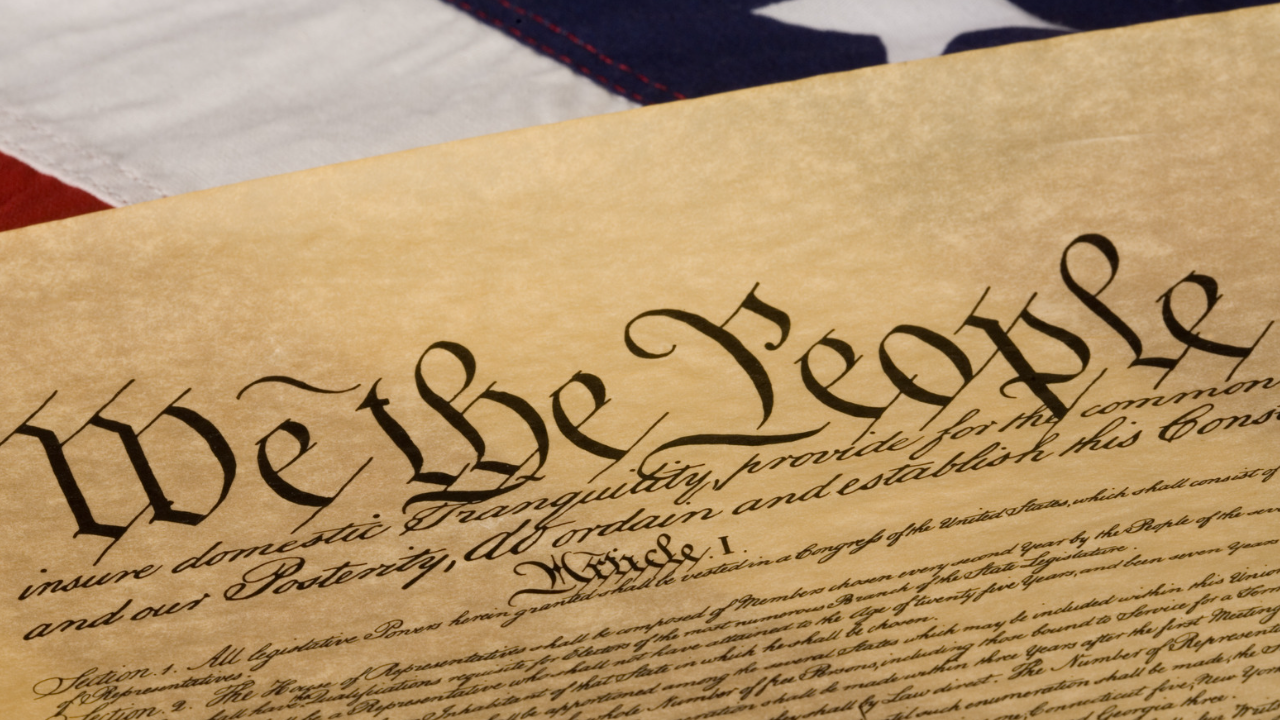 We the People
insure domestic Tranquility, provide for the common
and our Posterity, do ordain and establish this Cons
Article. I.
Section. 1. All legislative Powers herein granted shall be vested in a Congress of the United States, which shall consist of
of Representatives.
Section. 2. The House of Representatives shall be composed of Members chosen every second Year by the People of the seve
shall have Qualifications requisite for Electors of the most numerous Branch of the State Legislature.
a Representative who shall not have attained to the Age of twenty five Years, and been seven Years
Inhabitant of that State in which he shall be chosen.
be apportioned among the several States which may be included within this Union
whole Number of free Persons, including those bound to Service for a Term
shall be made within three Years after the first Meeting
by Law direct. The Number of Represent
such enumeration shall be made, the S
Connecticut five, New York
Georgia three.